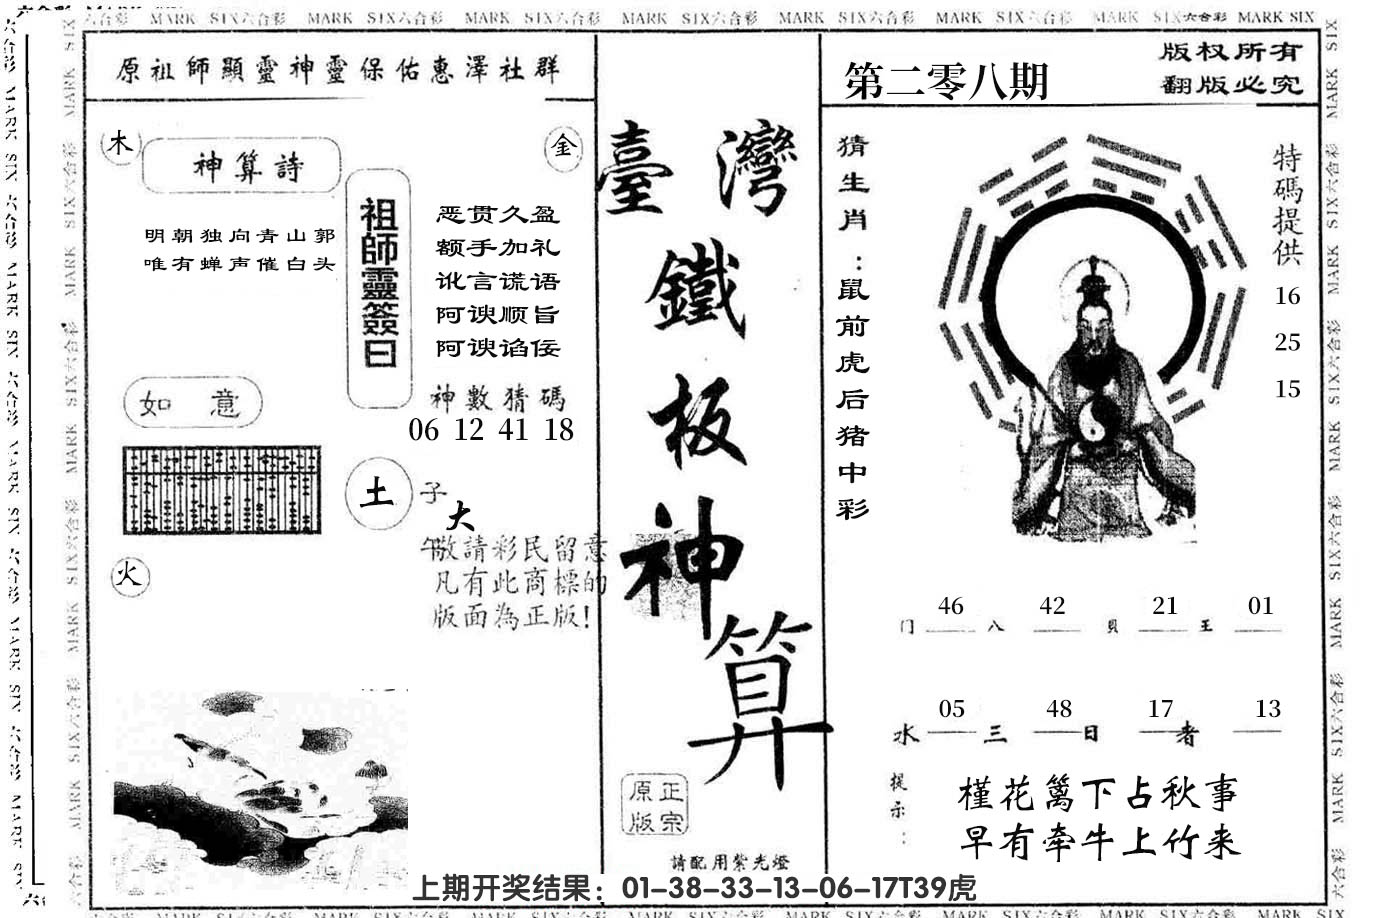 MARK SIX六合彩 MARK SIX六合彩 MARK SIX六合彩 MARK SIX六合彩 MARK SIX六合彩 MARK SIX六合彩 MARK SIX六合彩 MARK SIX
原祖師顯靈神靈保佑惠澤社群
木
神算詩
金
明朝独向青山郭
唯有蝉声催白头
祖師靈簽曰
恶贯久盈
额手加礼
讹言谎语
阿谀顺旨
阿谀谄佞
神數猜碼
06 12 41 18
如意
土
子
大
午
敬請彩民留意
凡有此商標的
版面為正版!
火
臺灣
鐵
板
神
算
正宗
原版
請配用紫光燈
第二零八期
版权所有
翻版必究
猜生肖：鼠前虎后猪中彩
特碼提供
16
25
15
46 42 21 01
门 八 贝 王
05 48 17 13
水 三 日 者
提示：
槿花篱下占秋事
早有牵牛上竹来
上期开奖结果：01-38-33-13-06-17T39虎